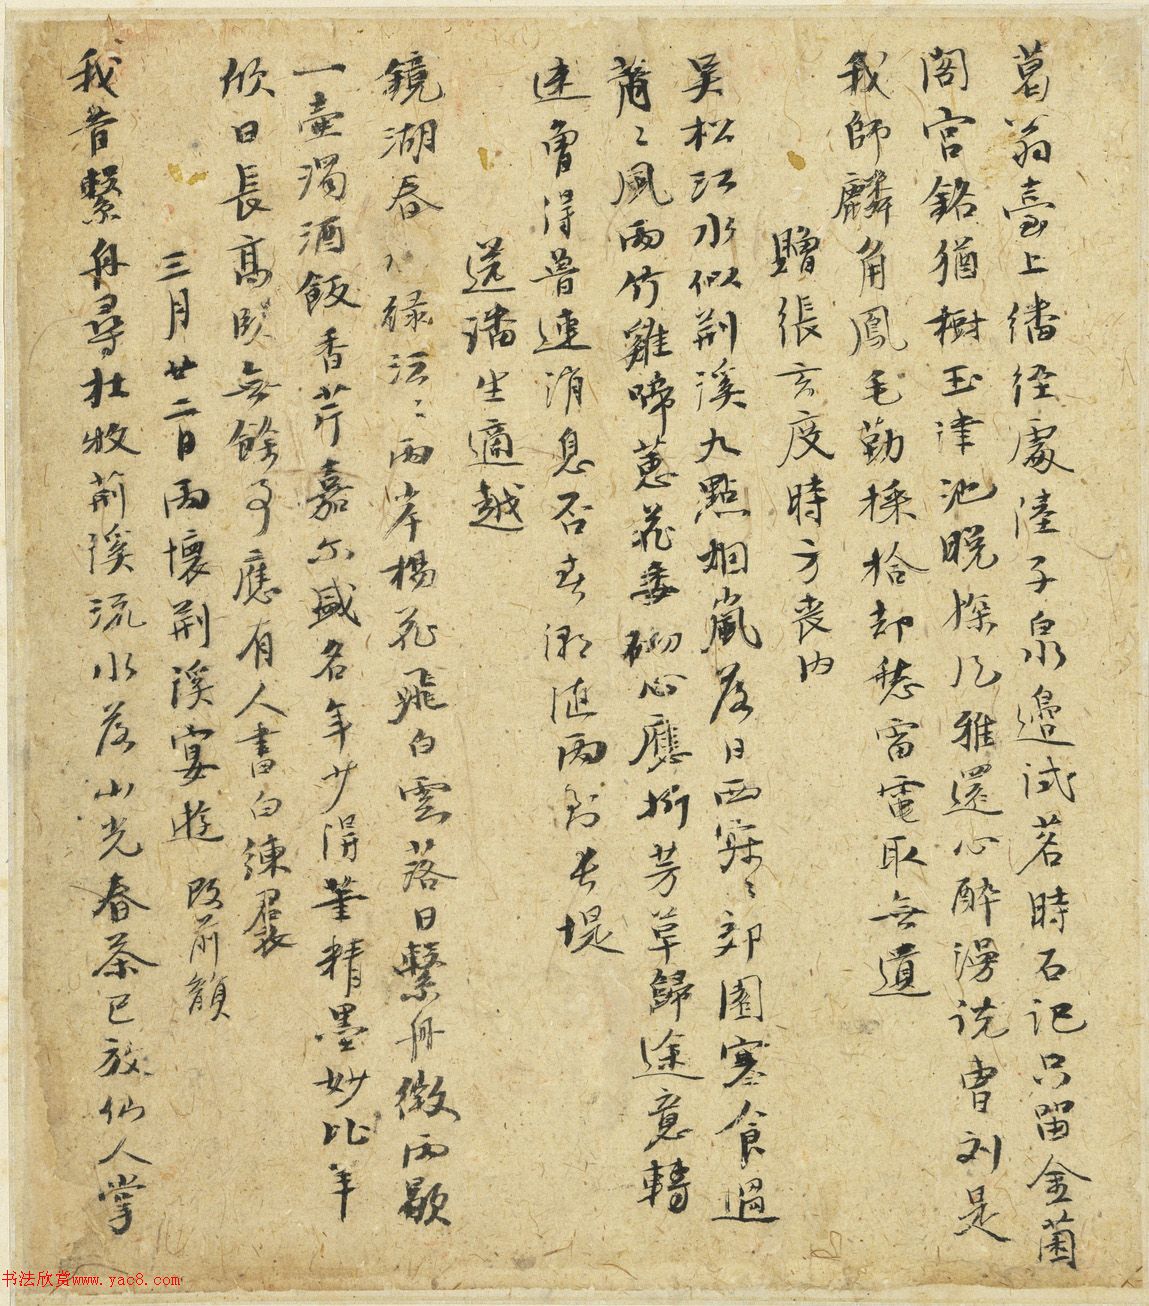 葛翁臺上繙經處陸子泉邊試茗時石記只留金菌
閣宮銘猶樹玉津池晚探風雅還心醉漫説曹刘是
我師麟角鳳毛勤採拾却愁雷電取無遺
贈張玄度時方喪内
吴松江水似荆溪九點烟嵐落日西寂〻郊園寒食過
蕭〻風雨竹雞啼蕙花委砌心應折芳草歸途意轉
迷曾得普連消息否春潮随雨到長堤
送潘生適越
鏡湖春水緑沄〻兩岸楊花飛白雲落日繫舟微雨歇
一壶濁酒飯香芹嘉尔盛名年少得筆精墨妙比羊
欣日長高卧無餘事應有人書白練裙
三月廿二日雨懷荆溪宴遊 改前韻
我昔繫舟尋杜牧荆溪流水落山光春茶已放仙人掌
书法欣赏www.yac8.com